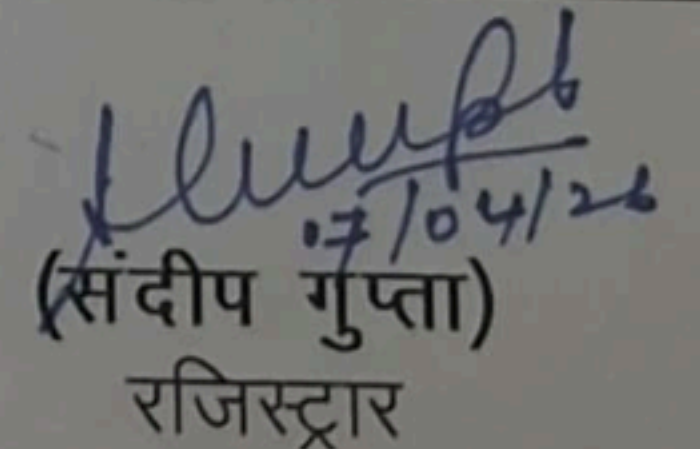 07/04/26
(संदीप गुप्ता)
रजिस्ट्रार